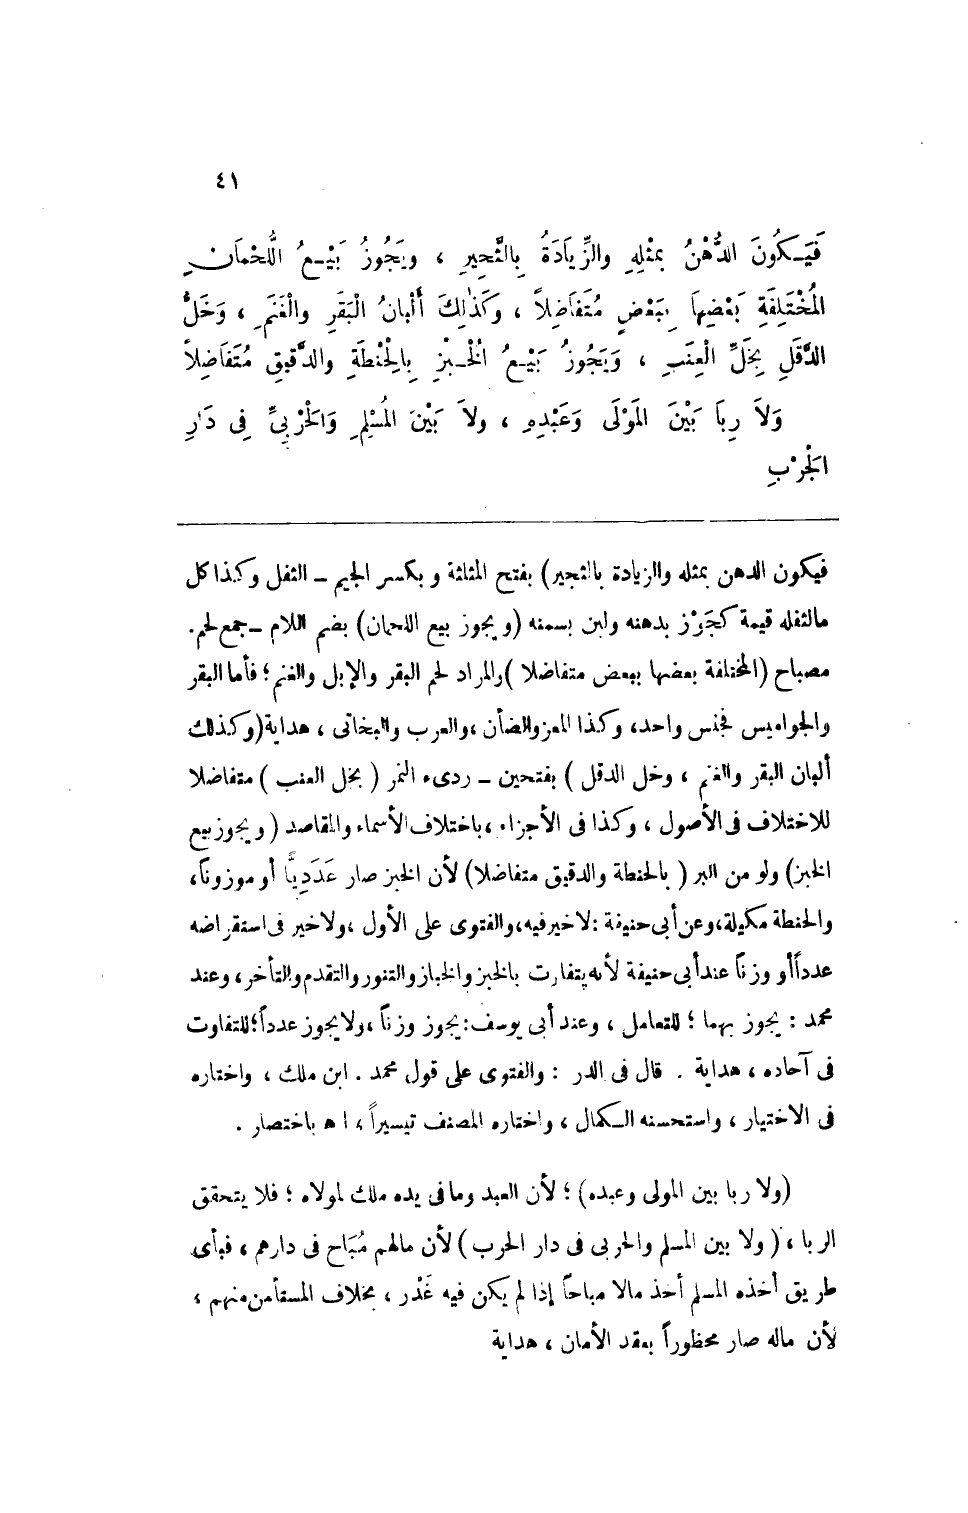 ٤١
فَيَـكُونَ الدُّهْنُ بمِثْلِهِ والزِّيَادَةُ بِالثَّجِيرِ ، ويَجُوزُ بَيْـعُ اللُّحْمَانِ
المُخْتَلِفَةِ بَعْضِهَا بِبَعْضٍ مُتَفَاضِلاً ، وَكَذٰلِكَ أَلْبَانُ الْبَقَرِ والْغَنَمِ ، وَخَلُّ
الدَّقَلِ بِخَلِّ الْعِنَبِ ، وَيَجُوزُ بَيْـعُ الْخُـبْزِ بِالْحِنْطَةِ والدَّقِيقِ مُتَفَاضِلاً
وَلاَ رِبَا بَيْنَ المَوْلَى وَعَبْدِهِ ، ولاَ بَيْنَ المُسْلِمِ وَالْحَرْبِيِّ فِى دَارِ
الْحَرْبِ
فيكون الدهن بمثله والزيادة بالثجير) بفتح المثلثة وبكسر الجيم – الثفل وكذا كل
مالثفله قيمة كجَوْز بدهنه ولبن بسمنه (ويجوز بيع اللحمان) بضم اللام – جمع لحم.
مصباح (المختلفة بعضها ببعض متفاضلا )والمراد لحم البقر والإبل والغنم؛ فأما البقر
والجواميس فجنس واحد، وكذا المعز والضأن ،والعرب والبخاتى ، هداية(وكذلك
ألبان البقر والغنم ، وخل الدقل ) بفتحتين – ردىء التمر ( بخل العنب ) متفاضلا
للاختلاف فى الأصول ، وكذا فى الأجزاء ،باختلاف الأسماء والمقاصد ( ويجوز بيع
الخبز) ولو من البر ( بالحنطة والدقيق متفاضلا) لأن الخبز صار عَدَدِيًّا أو موزوناً،
والحنطة مكيلة،وعن أبى حنيفة :لاخير فيه،والفتوى على الأول ،ولاخير فى استقراضه
عدداًأو وزناً عند أبى حنيفة لأنه يتفاوت بالخبز والخباز والتنور والتقدم والتأخر، وعند
محمد : يجوز بهما ؛ للتعامل ، وعند أبى يوسف:يجوز وزناً ،ولايجوز عدداً؛للتفاوت
فى آحاده ، هداية . قال فى الدر : والفتوى على قول محمد . ابن ملك ، واختاره
فى الاختيار ، واستحسنه الـكمال ، واختاره المصنف تيسيراً ، اه‍ باختصار .
(ولا ربا بين المولى وعبده) ؛ لأن العبد وما فى يده ملك لمولاه ؛ فلا يتحقق
الربا ، ( ولا بين المسلم والحربى فى دار الحرب ) لأن مالهم مُبَاح فى دارهم ، فبأى
طريق أخذه المسلم أخذ مالا مباحاً إذا لم يكن فيه غَدْر ، بخلاف المستأمن منهم ،
لأن ماله صار محظوراً بعقد الأمان ، هداية